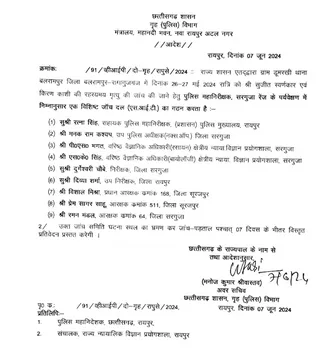 छत्तीसगढ़ शासन
गृह (पुलिस) विभाग
मंत्रालय, महानदी भवन, नवा रायपुर अटल नगर
//आदेश//
रायपुर, दिनांक 07 जून 2024
क्रमांक /91/व्हीआईपी/दो-गृह/रापुसे/2024 : राज्य शासन एतद्द्वारा ग्राम डूमरखी थाना
बलरामपुर जिला बलरामपुर-रामानुजगंज में दिनांक 26-27 मई 2024 की रात्रि को श्री सुजीत स्वर्णकार एवं
किरण काशी की रहस्यमय मृत्यु की जांच की जाने हेतु पुलिस महानिरीक्षक, सरगुजा रेंज के पर्यवेक्षण में
निम्नानुसार एक विशिष्ट जाँच दल (एस.आई.टी) का गठन करता है :-
(1) सुश्री रत्ना सिंह, सहायक पुलिस महानिरीक्षक, (प्रशासन) पुलिस मुख्यालय, रायपुर
(2) श्री मनक राम कश्यप, उप पुलिस अधीक्षक(नक्सऑप) जिला सरगुजा
(3) श्री पी०एस० भगत, वरिष्ठ वैज्ञानिक अधिकारी(रसायन) क्षेत्रीय न्याया विज्ञान प्रयोगशाला, सरगुजा
(4) श्री एस०के० सिंह, वरिष्ठ वैज्ञानिक अधिकारी(बायोलॉजी) क्षेत्रीय न्याया. विज्ञान प्रयोगशाला, सरगुजा
(5) सुश्री दुर्गेश्वरी चौबे, निरीक्षक, जिला सरगुजा
(6) सुश्री दिव्या शर्मा, उप निरीक्षक, जिला रायपुर
(7) श्री विशाल मिश्रा, प्रधान आरक्षक क्रमांक 168, जिला सूरजपुर
(8) श्री प्रेम सागर साहू, आरक्षक क्रमांक 511, जिला सूरजपुर
(9) श्री रमन मंडल, आरक्षक क्रमांक 64, जिला सरगुजा
2/ उक्त जांच समिति घटना स्थल का भ्रमण कर जांच-पड़ताल पश्चात् 07 दिवस के भीतर विस्तृत
प्रतिवेदन प्रस्तुत करेगी ।
छत्तीसगढ़ के राज्यपाल के नाम से
तथा आदेशानुसार,
7/6/24
(मनोज कुमार श्रीवास्तव)
अवर सचिव
छत्तीसगढ़ शासन, गृह (पुलिस) विभाग
पृ. क्र. /91/व्हीआईपी/दो-गृह/रापुसे/2024 रायपुर, दिनांक 07 जून 2024
प्रतिलिपि:-
1. पुलिस महानिदेशक, छत्तीसगढ़, रायपुर,
2. संचालक, राज्य न्यायालिक विज्ञान प्रयोगशाला, रायपुर